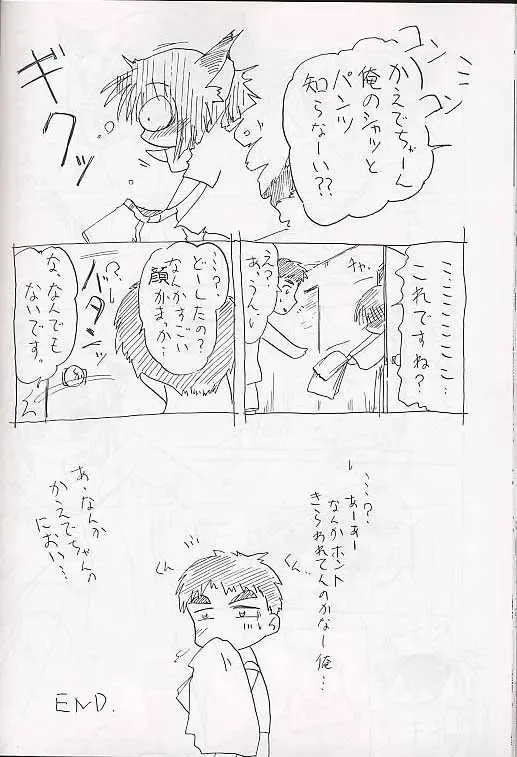 コンコン
かえでちゃーん
俺のシャツと
パンツ
知らなーい??
ギクッ
……………
これですね?
チャ
え?
あ、うん
…?
どーしたの?
なんかすごい
顔がまっか…
バタンッ
な、なんでも
ないです。
…?
あーあー
なんかホント
きらわれてんのかなー俺…
くん
くん
あ、なんか
かえでちゃんの
におい…
END.